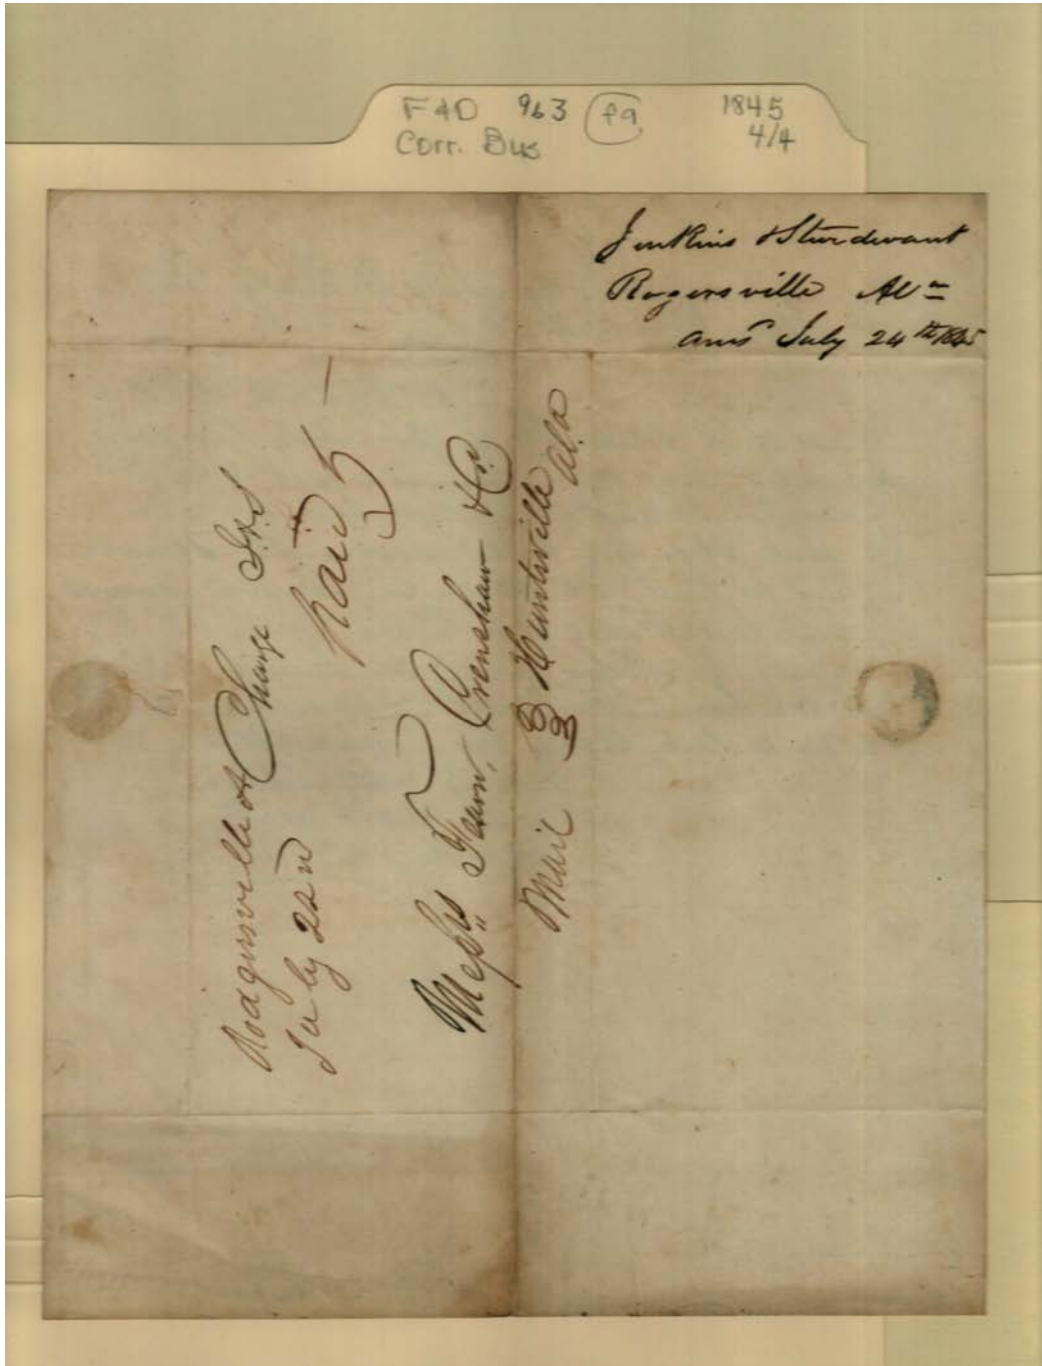 F&D 963 fa 1845
Corr. Bus 4/4
Jenkins & Sturdivant
Rogersville Ala
ansd July 24th 1845
Rodgersville A
Charge
July 22d
Paid 5
Messrs Fearn, Crenshaw & Co.
Huntsville
Ala
Mail